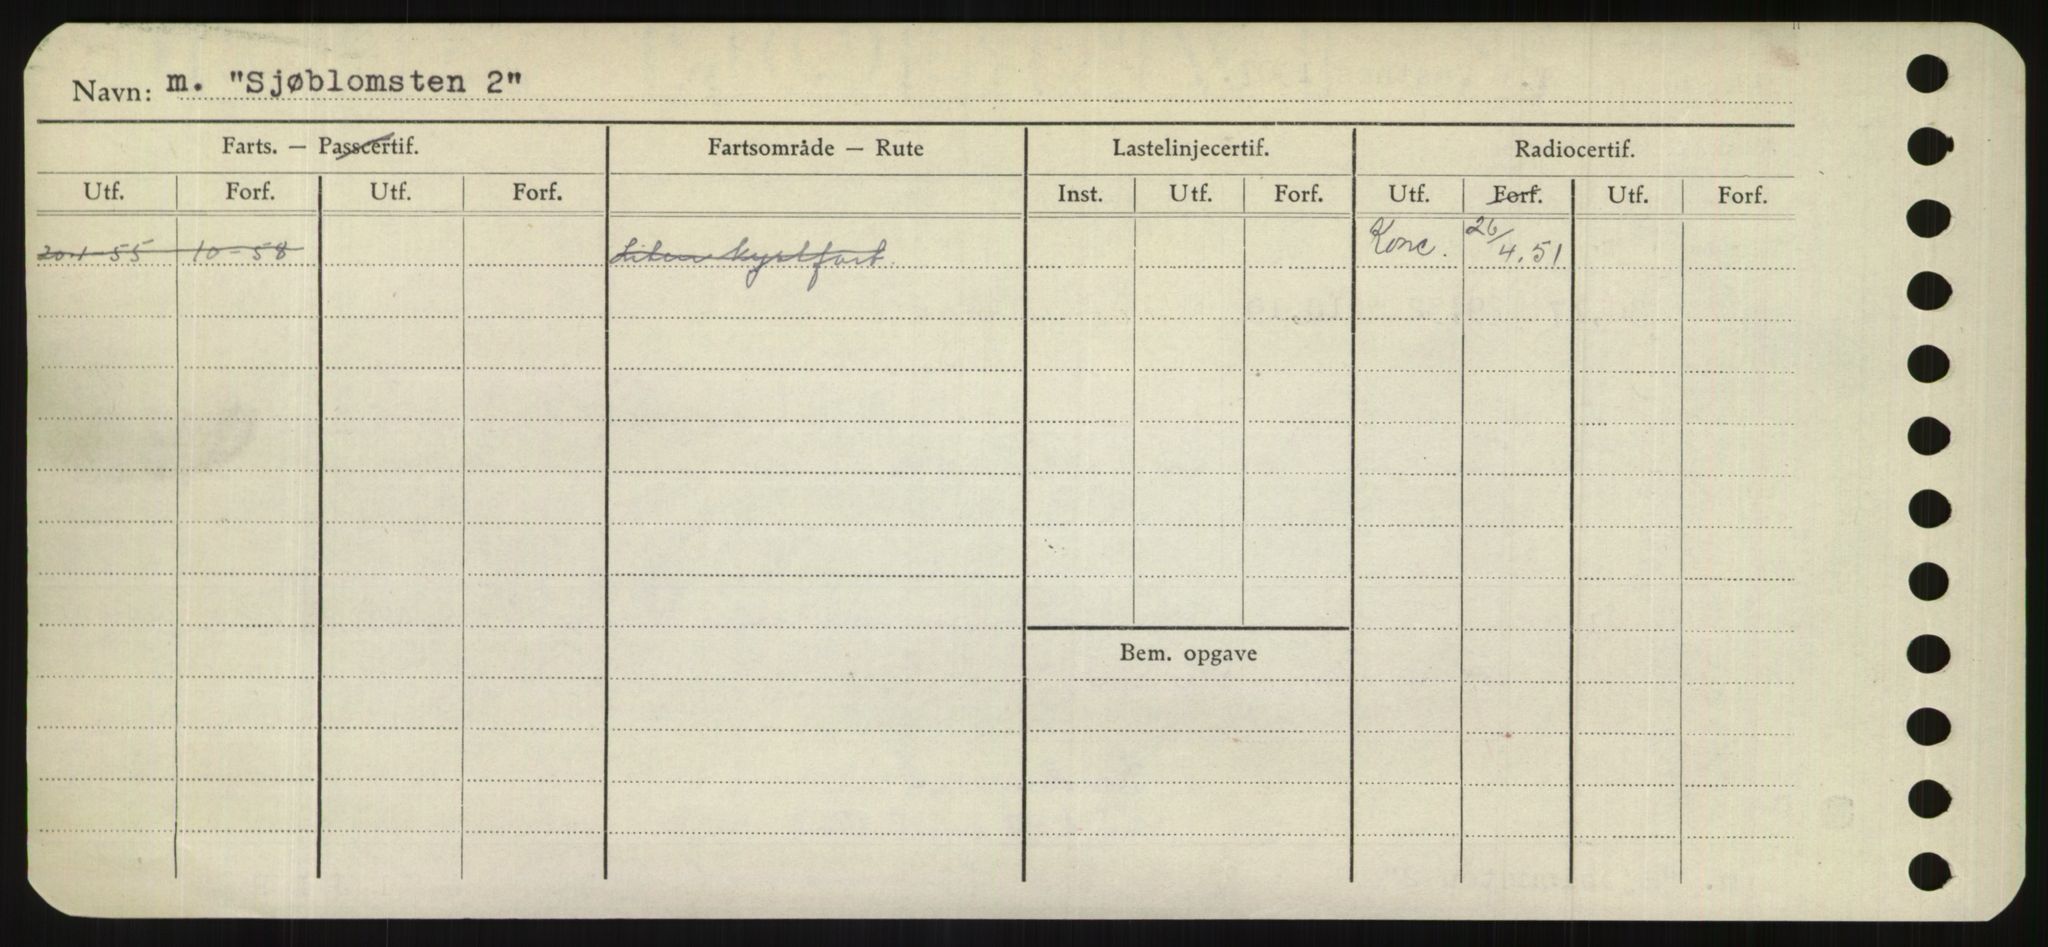 Navn: m. "Sjøblomsten 2"
Farts. — Passcertif. Fartsområde — Rute Lastelinjecertif. Radiocertif.
Utf. Forf. Utf. Forf. Inst. Utf. Forf. Utf. Forf. Utf. Forf.
20-1-55 10-58 Liten kystfart. Konc. 26/4.51
Bem. opgave